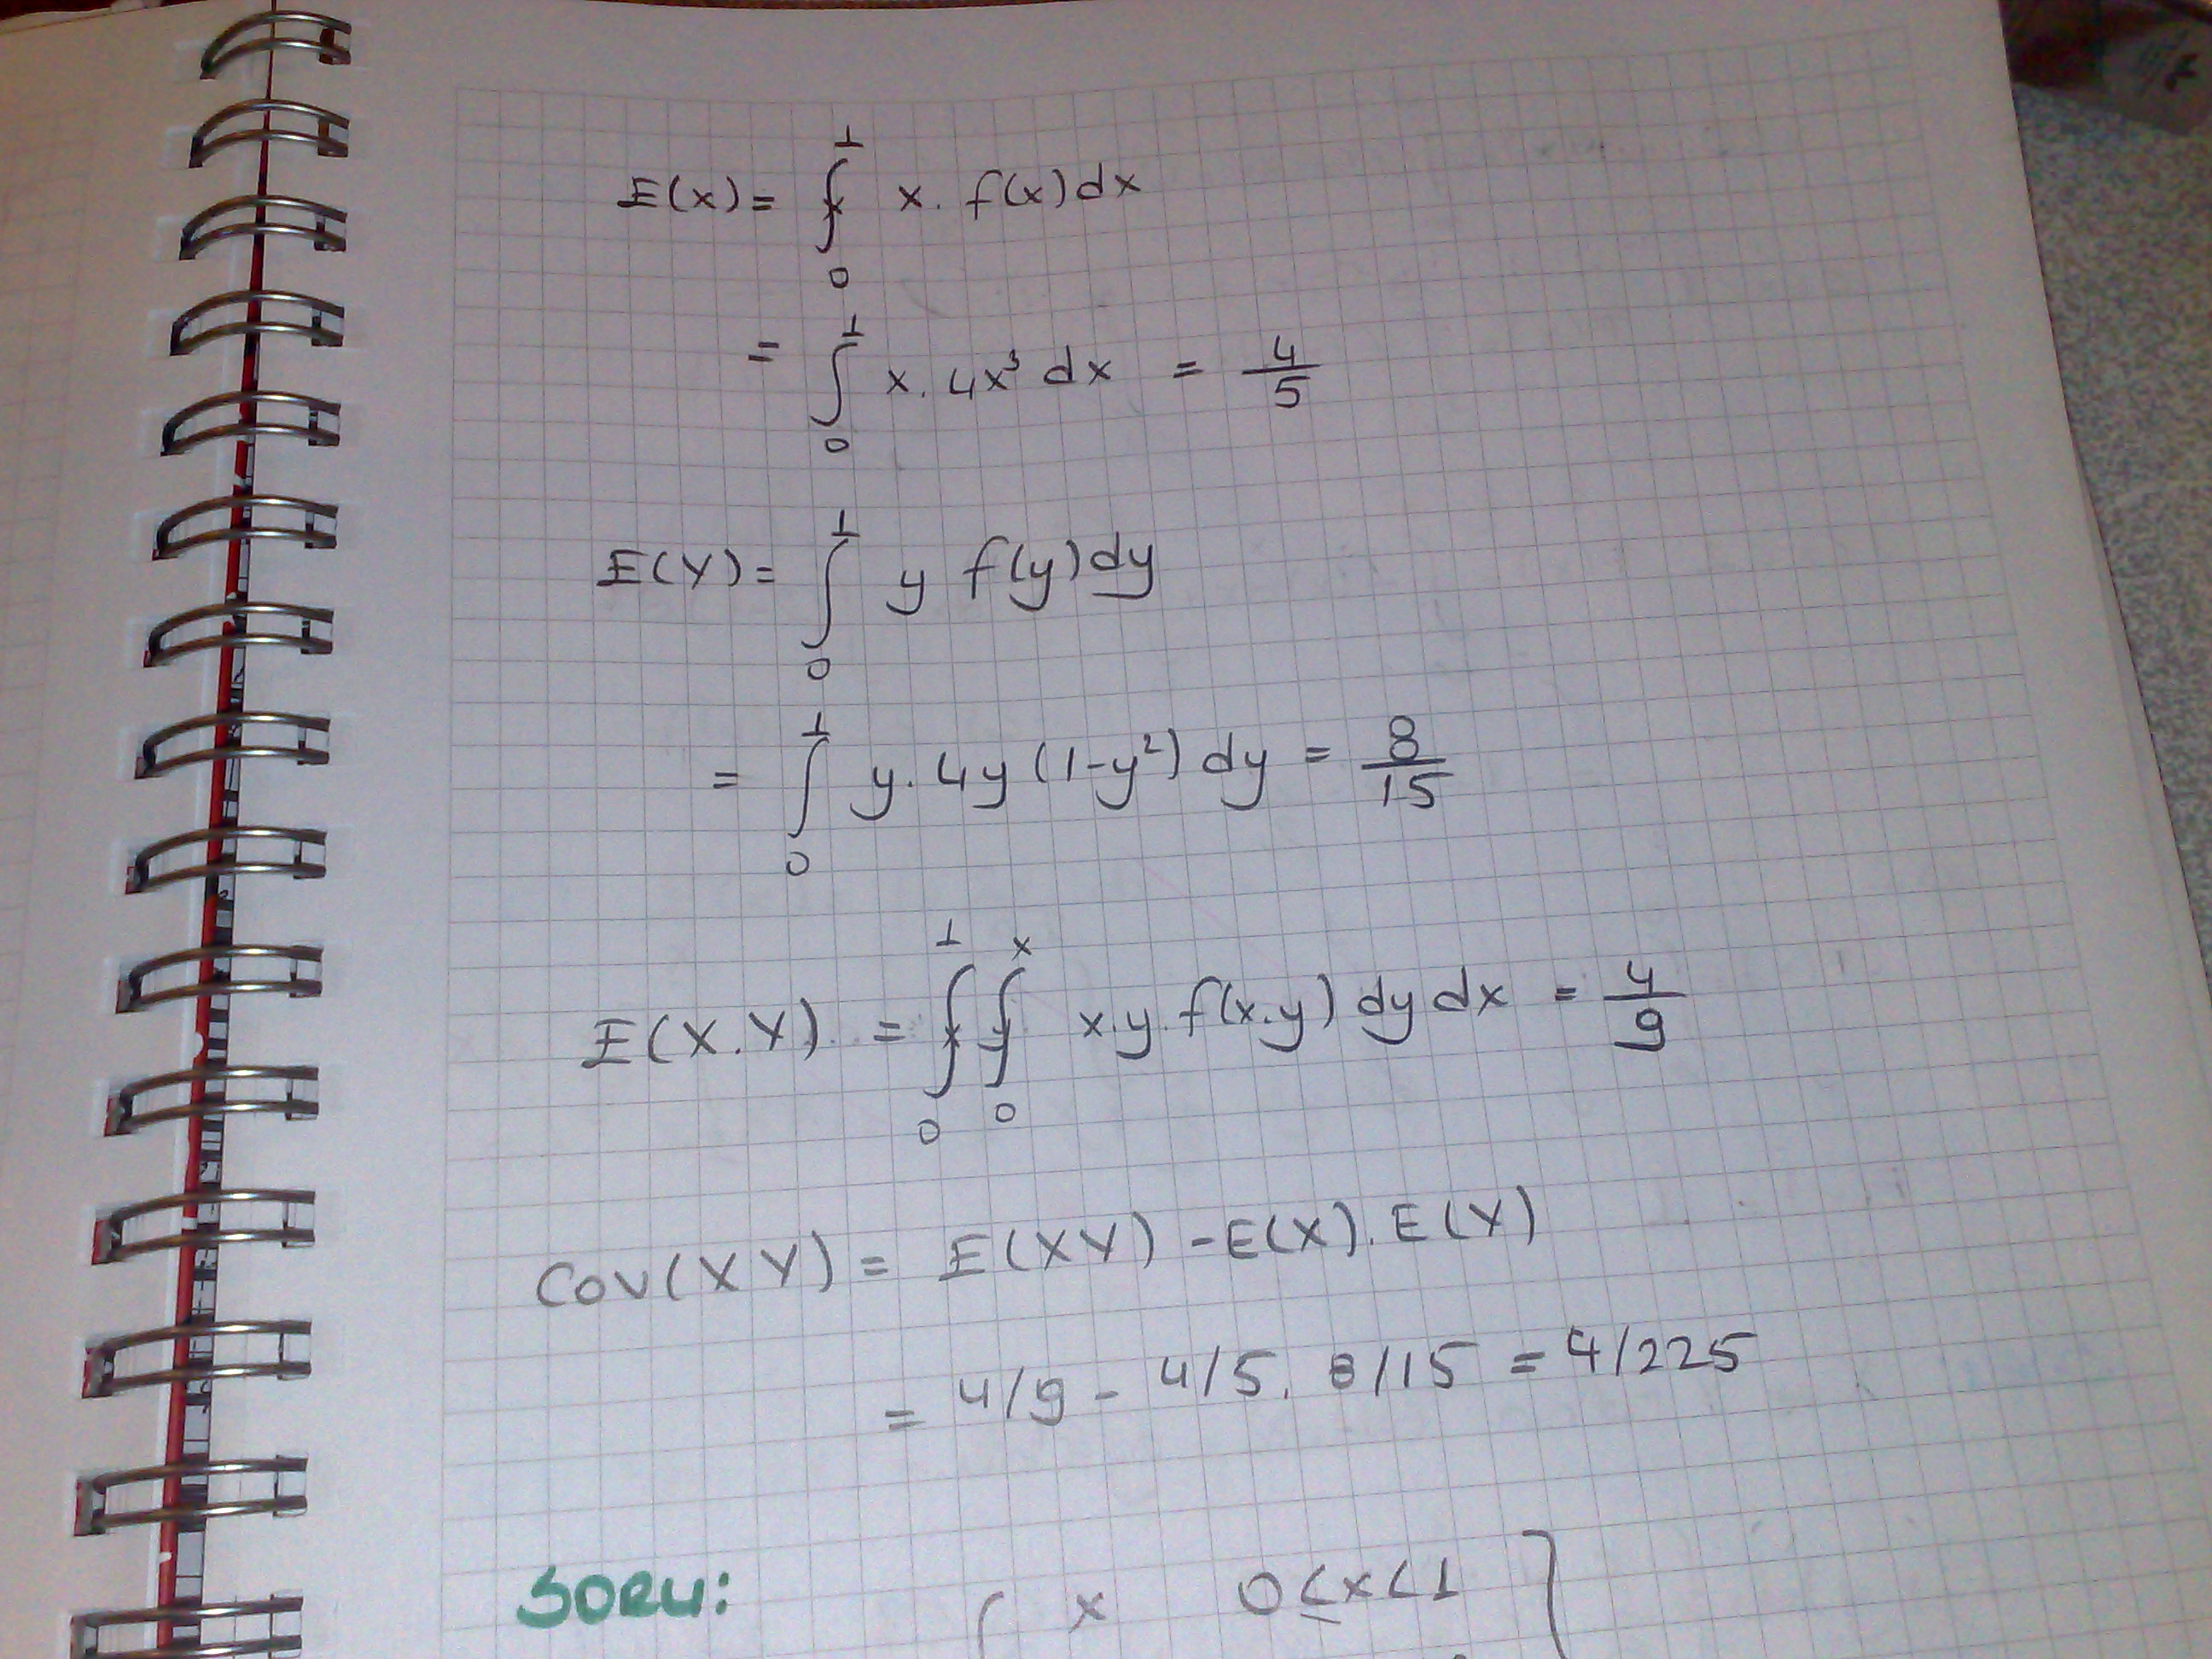 E(x) = ∫₀¹ x. f(x) dx
= ∫₀¹ x. 4x³ dx = 4/5
E(Y) = ∫₀¹ y f(y) dy
= ∫₀¹ y. 4y (1-y²) dy = 8/15
E(X.Y) = ∫₀¹ ∫₀ˣ x.y. f(x.y) dy dx = 4/9
Cov(XY) = E(XY) - E(X). E(Y)
= 4/9 - 4/5. 8/15 = 4/225
SORU: x 0≤x<1